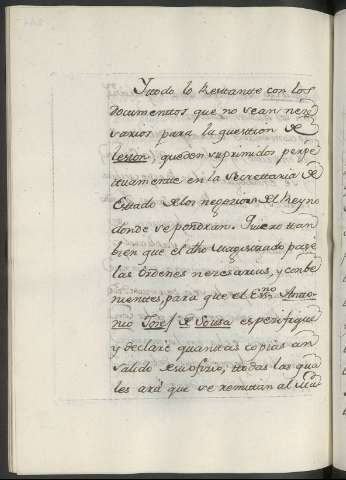 Ytodo lo Restante con los
documenttos que no sean neze
sarios para la questtion de
lesion, queden suprimidos perpe
ttuamente en la Secrettaria de
Estado de los negozios del Reyno
donde se pondran. Quiero ttan
bien que el dho Magistrado pase
las Ordenes nezesarias, y conbe
nienttes, para que el Exmo Antto
nio Josef de Sousa espezifique
y declare quanttas copias an
salido de su ofizio, ttodas las qua
les ará que se remittan al Ma